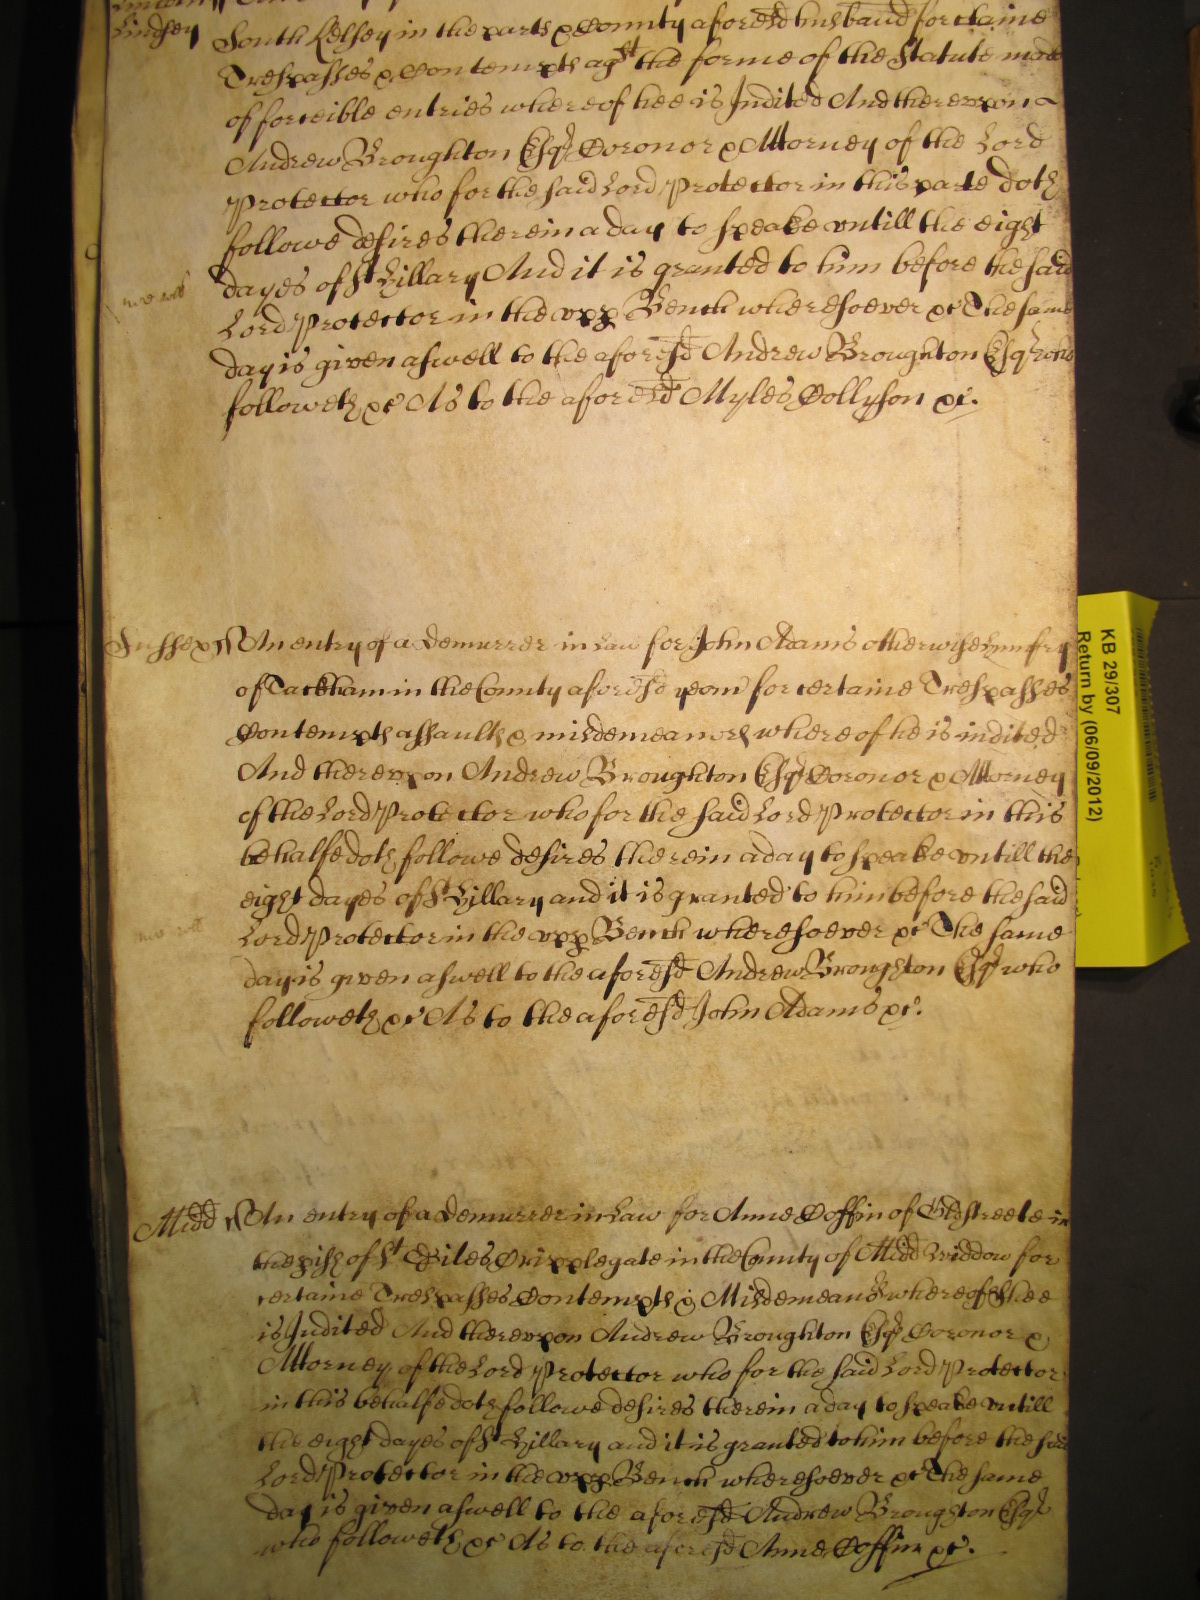 Lindsey
South Kelsey in the parts & County aforesd husband for certaine
Trespasses & Contempts agst the forme of the Statute made
of forceible entries whereof hee is Indited And therevpon
Andrew Broughton Esqr Coronor & Attorney of the Lord
Protector who for the said Lord Protector in this parte doth
followe desires therein a day to speake vntill the eight
dayes of St Hillary And it is granted to him before the said
Lord Protector in the vpp Bench wheresoever &c The same
day is given aswell to the aforesd Andrew Broughton Esqr who
followeth &c As to the aforesd Myles Collyson &c.
Sussex ss An entry of a Demurrer in Law for John Adams otherwise Humfry
of Tackham in the County aforesd yeom for certaine Trespasses
Contempts assaults & misdemeanors whereof he is indited
And therevpon Andrew Broughton Esqr Coronor & Attorney
of the Lord Protector who for the said Lord Protector in this
behalfe doth followe desires therein a day to speake vntill the
eight dayes of St Hillary and it is granted to him before the said
Lord Protector in the vpp Bench wheresoever &c The same
day is given aswell to the aforesd Andrew Broughton Esqr who
followeth &c As to the aforesd John Adams &c.
Midd ss An entry of a Demurrer in Law for Anne Coffin of Oldstreete in
the pish of St Giles Cripplegate in the County of Midd Widdow for
certaine Trespasses Contempts & Misdemeanors whereof shee
is Indited And therevpon Andrew Broughton Esqr Coronor &
Attorney of the Lord Protector who for the said Lord Protector
in this behalfe doth followe desires therein a day to speake vntill
the eight dayes of St Hillary and it is granted to him before the said
Lord Protector in the vpp Bench wheresoever &c The same
day is given aswell to the aforesd Andrew Broughton Esqr
who followeth &c As to the aforesd Anne Coffin &c.
KB 29/307
Return by (06/09/2012)